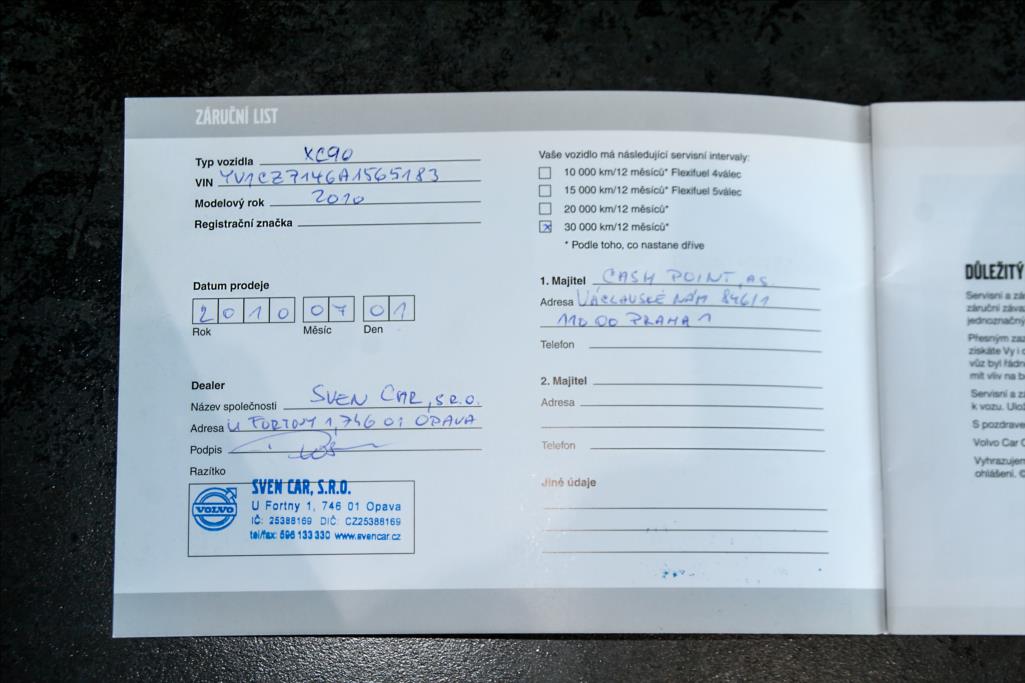 ZÁRUČNÍ LIST
Typ vozidla XC90
VIN YV1CZ7146A1565183
Modelový rok 2010
Registrační značka
Datum prodeje
2010 07 01
Rok Měsíc Den
Dealer
Název společnosti SVEN CAR, S.R.O.
Adresa U FORTNY 1, 746 01 OPAVA
Podpis
Razítko
VOLVO
SVEN CAR, S.R.O.
U Fortny 1, 746 01 Opava
IČ: 25388169 DIČ: CZ25388169
tel/fax: 596 133 330 www.svencar.cz
Vaše vozidlo má následující servisní intervaly:
10 000 km/12 měsíců* Flexifuel 4válec
15 000 km/12 měsíců* Flexifuel 5válec
20 000 km/12 měsíců*
x 30 000 km/12 měsíců*
* Podle toho, co nastane dříve
1. Majitel CASH POINT, AS
Adresa VÁCLAVSKÉ NÁM 846/1
110 00 PRAHA 1
Telefon
2. Majitel
Adresa
Telefon
Jiné údaje
DŮLEŽITÝ
Servisní a zá
záruční záva
jednoznačný
Přesným zaz
získáte Vy i o
vůz byl řádn
mít vliv na b
Servisní a zá
k vozu. Ulož
S pozdrave
Volvo Car C
Vyhrazujem
ohlášení. ©